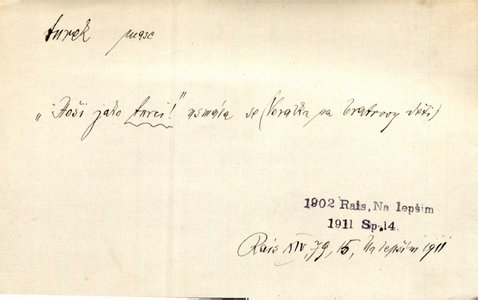 turek masc
„Hoši jako turci!" usmála se (Voralka na bratrovy děti)
1902 Rais, Na lepším
1911 Sp.14.
Rais XIV, 79, 15, Na lepším 1911